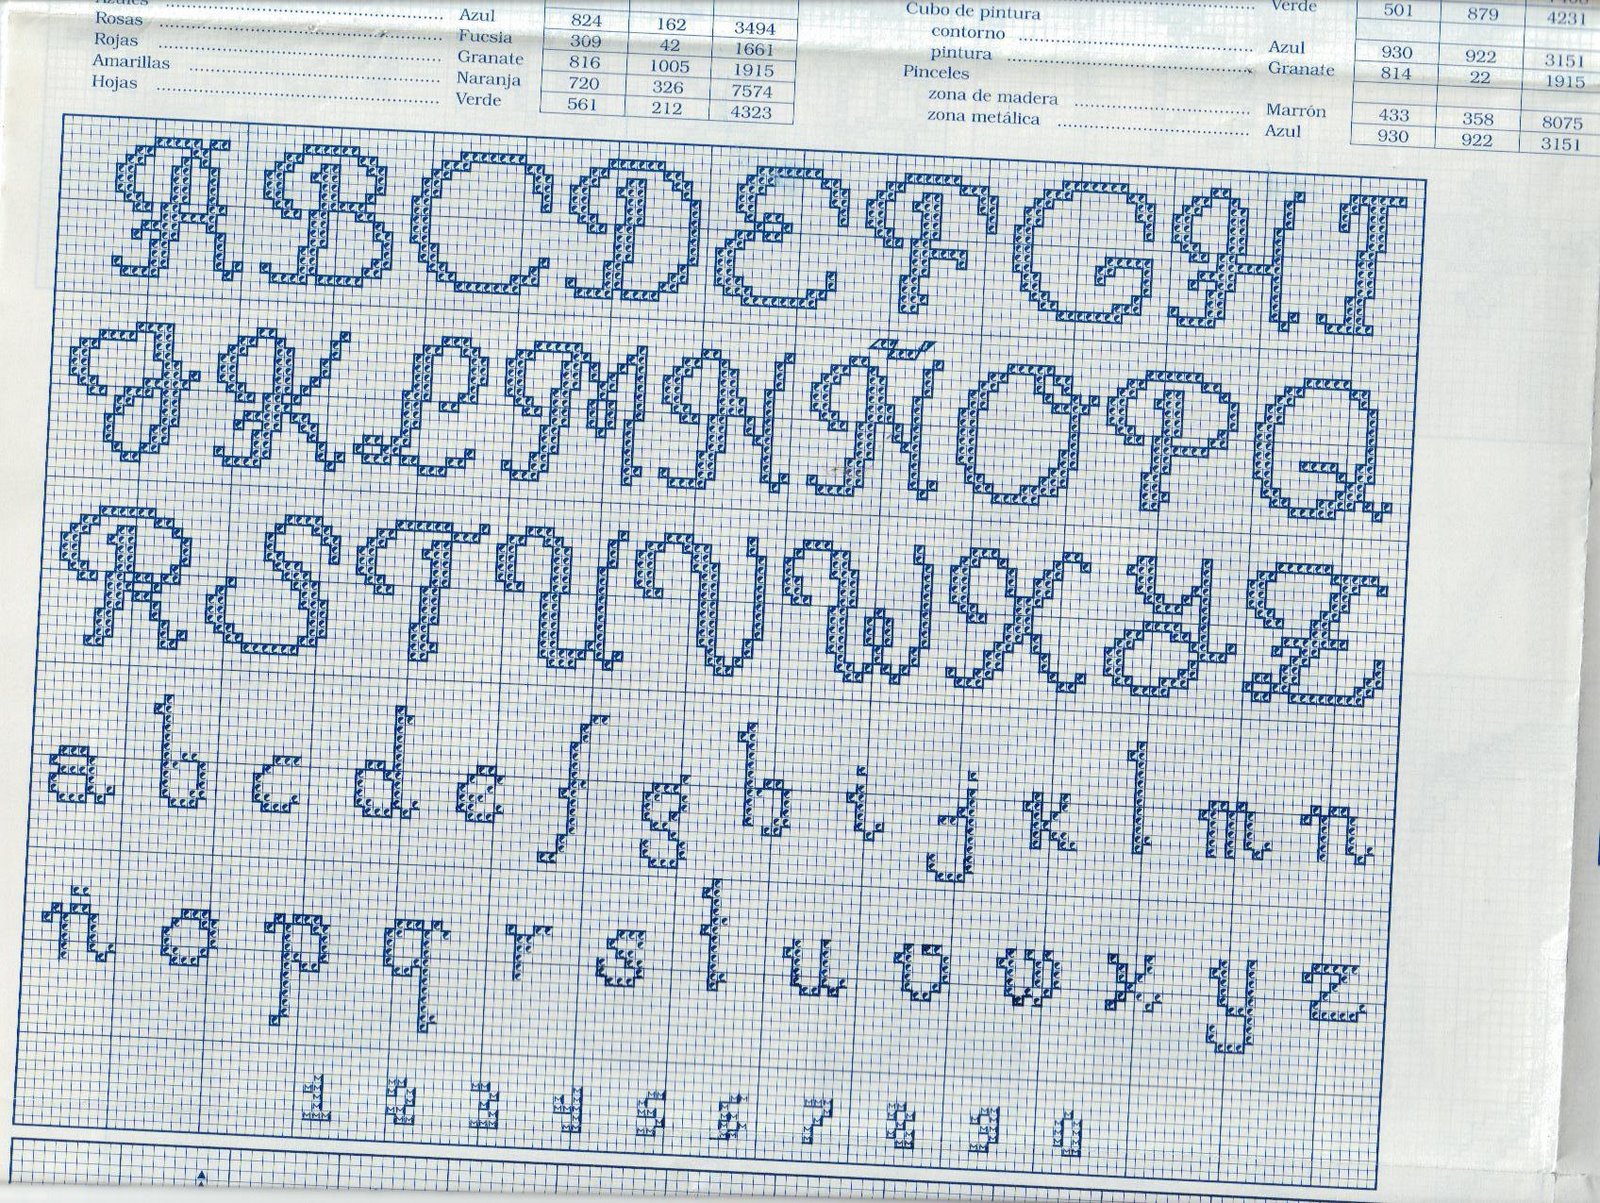 Azules
Rosas Azul 824 162 3494
Rojas Fucsia 309 42 1661
Amarillas Granate 816 1005 1915
Hojas Naranja 720 326 7574
Verde 561 212 4323
Verde 501 879 4231
Cubo de pintura
contorno Azul 930 922 3151
pintura Granate 814 22 1915
Pinceles
zona de madera Marrón 433 358 8075
zona metálica Azul 930 922 3151
A B C D E F G H I
J K L M N Ñ O P Q
R S T U V W X Y Z
a b c d e f g h i j k l m n
ñ o p q r s t u o v x y z
1 2 3 4 5 6 7 8 9 1